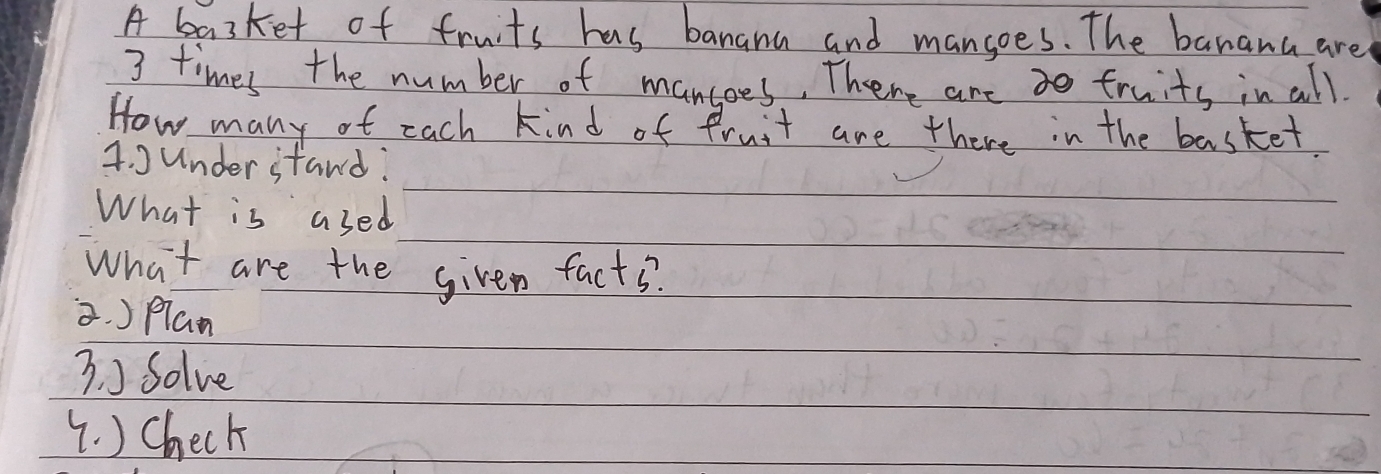 A basket of fruits has banana and mangoes. The banana are
3 times the number of mangoes. There are 20 fruits in all.
How many of each kind of fruit are there in the basket.
1.) Understand:
What is ased
What are the given facts?
2.) Plan
3.) Solve
4.) Check